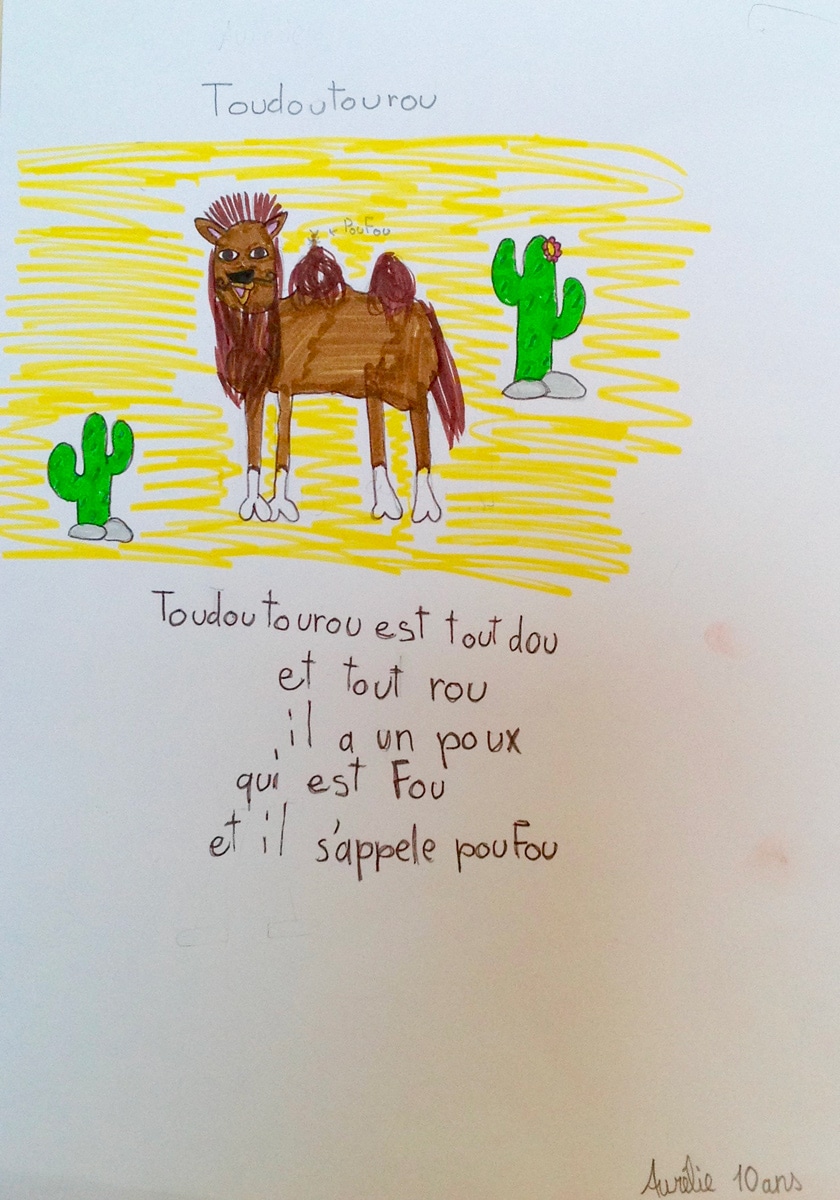 Toudoutourou
PouFou
Toudoutourou est tout dou
et tout rou
il a un poux
qui est Fou
et il s'appele pouFou
Aurélie 10 ans